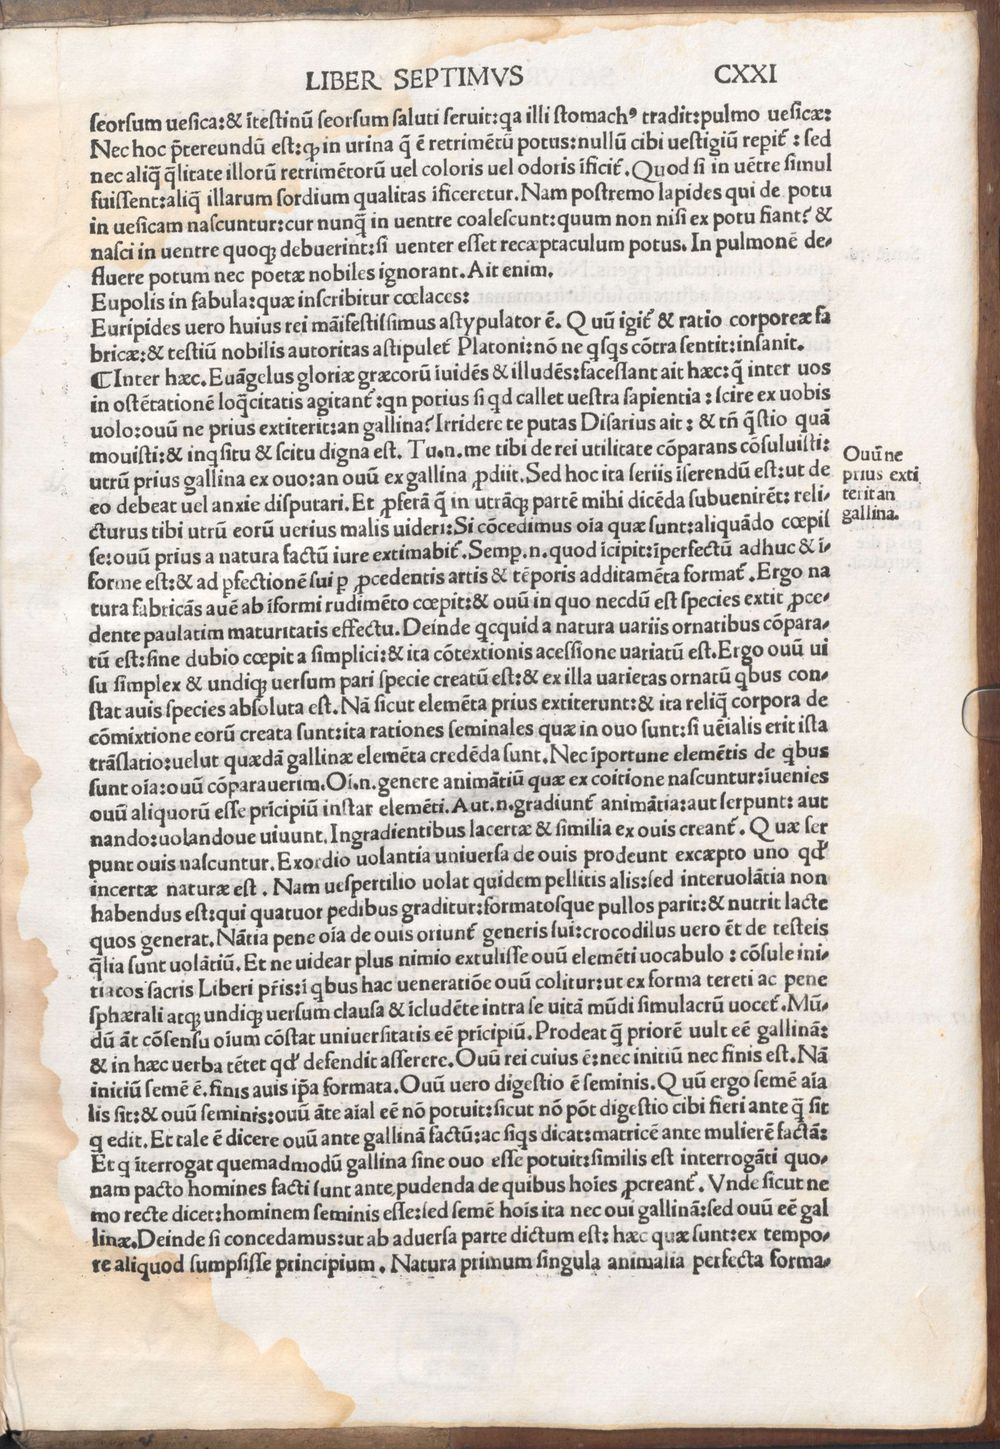 LIBER SEPTIMVS CXXI
ſeorſum ueſica:& ĩteſtinũ ſeorſum ſaluti ſeruit:qa illi ſtomachꝰ tradit:pulmo ueſicæ:
Nec hoc p̃tereundũ eſt:ꝙ in urina q̃ ẽ retrimẽtũ potus:nullũ cibi ueſtigiũ repit̃ : ſed
nec aliq̃ q̃litate illorũ retrimẽtorũ uel coloris uel odoris ĩficit̃. Quod ſi in uẽtre ſimul
fuiſſent:aliq̃ illarum ſordium qualitas ĩficeretur. Nam poſtremo lapides qui de potu
in ueſicam naſcuntur:cur nunq̃ in uentre coaleſcunt:quum non niſi ex potu fiant? &
naſci in uentre quoqꝫ debuerint:ſi uenter eſſet recæptaculum potus. In pulmonẽ de⸗
fluere potum nec poetæ nobiles ignorant. Ait enim.
Eupolis in fabula:quæ inſcribitur cœlaces:
Euripides uero huius rei mãifeſtiſſimus aſtypulator ẽ. Q uũ igit̃ & ratio corporeæ fa
bricæ:& teſtiũ nobilis autoritas aſtipulet̃ Platoni:nõ ne qſqs cõtra ſentit:inſanit.
¶Inter hæc. Euãgelus gloriæ græcorũ ĩuidẽs & illudẽs:faceſſant ait hæc:q̃ inter uos
in oſtẽtationẽ loq̃citatis agitant̃ :qn potius ſi qd callet ueſtra ſapientia : ſcire ex uobis
uolo:ouũ ne prius extiterit:an gallina? Irridere te putas Diſarius ait : & tñ q̃ſtio quã
mouiſti:& inqſitu & ſcitu digna eſt. Tu.n.me tibi de rei utilitate cõparans cõſuluiſti:
utrũ prius gallina ex ouo:an ouũ ex gallina ꝓdiit. Sed hoc ita ſeriis ĩſerendũ eſt:ut de
eo debeat uel anxie diſputari. Et ꝓferã q̃ in utrãqꝫ partẽ mihi dicẽda ſubuenirẽt: reli⸗
cturus tibi utrũ eorũ uerius malis uideri:Si cõcedimus oia quæ ſunt:aliquãdo cœpiſ
ſe:ouũ prius a natura factũ iure extimabit̃. Semp.n.quod ĩcipit:ĩperfectũ adhuc & ĩ⸗
forme eſt:& ad ꝑfectionẽ ſui ꝑ ꝓcedentis artis & tẽporis additamẽta format̃ . Ergo na
tura fabricãs auẽ ab ĩformi rudimẽto cœpit:& ouũ in quo necdũ eſt ſpecies extit ꝓce⸗
dente paulatim maturitatis effectu. Deinde qcquid a natura uariis ornatibus cõpara⸗
tũ eſt:ſine dubio cœpit a ſimplici:& ita cõtextionis aceſſione uariatũ eſt.Ergo ouũ ui
ſu ſimplex & undiqꝫ uerſum pari ſpecie creatũ eſt:& ex illa uarietas ornatũ qbus con⸗
ſtat auis ſpecies abſoluta eſt. Nã ſicut elemẽta prius extiterunt:& ita reliq̃ corpora de
cõmixtione eorũ creata ſunt:ita rationes ſeminales quæ in ouo ſunt:ſi uẽialis erit iſta
trãſlatio:uelut quædã gallinæ elemẽta credẽda ſunt. Nec ĩportune elemẽtis de qbus
ſunt oĩa:ouũ cõparauerim. Oĩ.n.genere animãtiũ quæ ex coitione naſcuntur:ĩuenies
ouũ aliquorũ eſſe prĩcipiũ inſtar elemẽti. Aut.n.gradiunt̃ animãtia:aut ſerpunt: aut
nando:uolandoue uiuunt. Ingradientibus lacertæ & ſimilia ex ouis creant̃ . Q uæ ſer
punt ouis naſcuntur. Exordio uolantia uniuerſa de ouis prodeunt excæpto uno qđ
incertæ naturæ eſt . Nam ueſpertilio uolat quidem pellitis alis:ſed interuolãtia non
habendus eſt:qui quatuor pedibus graditur:formatoſque pullos parit:& nutrit lacte
quos generat. Nãtia pene oĩa de ouis oriunt̃ generis ſui:crocodilus uero ẽt de teſteis
q̃lia ſunt uolãtiũ. Et ne uidear plus nimio extuliſſe ouũ elemẽti uocabulo : cõſule ini⸗
tiatos ſacris Liberi p̃ris:ĩ qbus hac ueneratiõe ouũ colitur:ut ex forma tereti ac pene
ſphærali atqꝫ undiqꝫ uerſum clauſa & ĩcludẽte intra ſe uitã mũdi ſimulacrũ uocet̃. Mũ⸗
dũ ãt cõſenſu oĩum cõſtat uniuerſitatis eẽ prĩcipiũ. Prodeat q̃ priorẽ uult eẽ gallinã:
& in hæc uerba tẽtet qđ defendit aſſerere. Ouũ rei cuius ẽ:nec initiũ nec finis eſt. Nã
initiũ ſemẽ ẽ. finis auis ip̃a formata. Ouũ uero digeſtio ẽ ſeminis. Q uũ ergo ſemẽ aĩa
lis ſit:& ouũ ſeminis:ouũ ãte aĩal eẽ nõ potuit:ſicut nõ põt digeſtio cibi fieri ante q̃ ſit
q edit. Et tale ẽ dicere ouũ ante gallinã factũ:ac ſiqs dicat:matricẽ ante mulierẽ factã:
Et q ĩterrogat quemadmodũ gallina ſine ouo eſſe potuit:ſimilis eſt interrogãti quo⸗
nam pacto homines facti ſunt ante pudenda de quibus hoĩes ꝓcreant̃. Vnde ſicut ne
mo recte dicet:hominem ſeminis eſſe:ſed ſemẽ hoĩs ita nec oui gallinã:ſed ouũ eẽ gal
linæ. Deinde ſi concedamus:ut ab aduerſa parte dictum eſt: hæc quæ ſunt:ex tempo⸗
re aliquod ſumpſiſſe principium . Natura primum ſingula animalia perfecta forma⸗
Ouũ ne
prius exti
terit an
gallina.